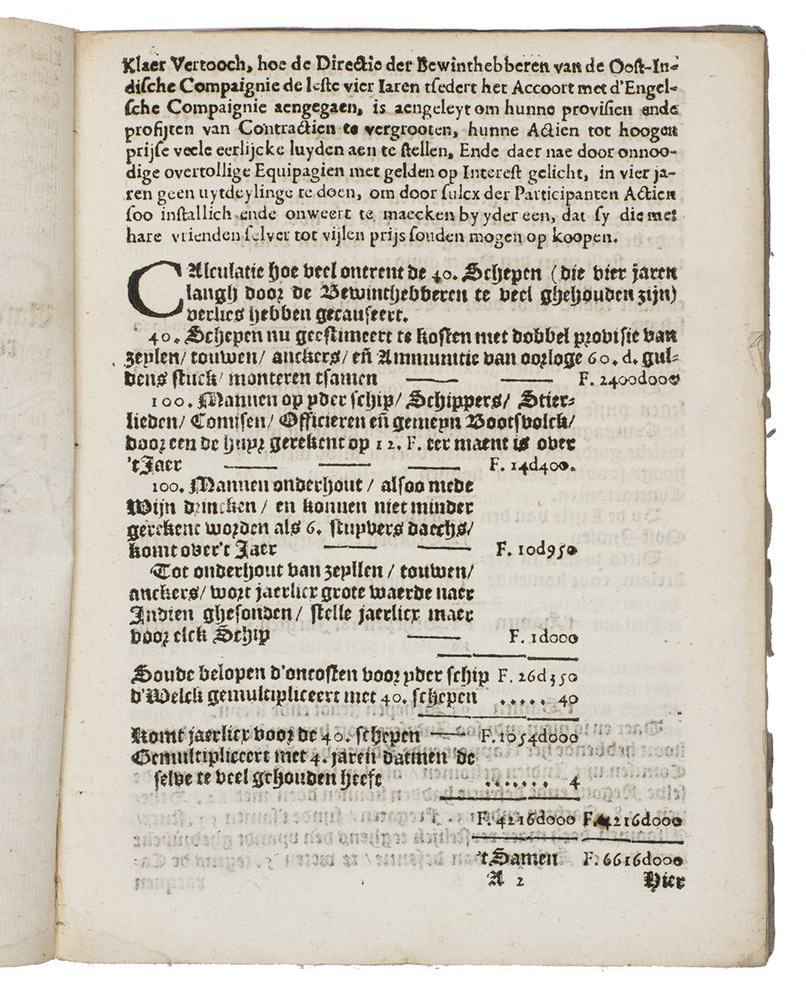 Klaer Vertooch, hoe de Directie der Bewinthebberen van de Oost-In-
dische Compaignie de leste vier Iaren tsedert het Accoort met d'Engel-
sche Compaignie aengegaen, is aengeleyt om hunne provisien ende
profijten van Contractien te vergrooten, hunne Actien tot hoogen
prijse veele eerlijcke luyden aen te stellen, Ende daer nae door onnoo-
dige overtollige Equipagien met gelden op Interest gelicht, in vier ja-
ren geen uytdeylinge te doen, om door sulcx der Participanten Actien
soo installich ende onweert te maecken by yder een, dat sy die met
hare vrienden selver tot vijlen prijs souden mogen op koopen.
CAlculatie hoe veel ontrent de 40. Schepen (die vier jaren
langh door de Bewinthebberen te veel ghehouden zijn)
verlies hebben gecauseert.
40. Schepen nu geestimeert te kosten met dobbel provisie van
zeylen/ touwen/ anckers/ eñ Ammunitie van oorloge 60. d. gul-
dens stuck/ monteren tsamen F. 2400d000
100. Mannen op yder schip/ Schippers/ Stier-
lieden/ Comisen/ Officieren eñ gemeyn Bootsvolck/
door een de huyr gerekent op 12. F. ter maent is over
't Jaer F. 14d400.
100. Mannen onderhout/ alsoo mede
Wijn drincken/ en konnen niet minder
gerekent worden als 6. stuyvers daechs/
komt over't Jaer F. 10d950
Tot onderhout van zeyllen/ touwen/
anckers/ wort jaerlicx grote waerde naer
Indien ghesonden/ stelle jaerlicx maer
voor elck Schip F. 1d000
Soude belopen d'oncosten voor yder schip F. 26d350
d'Welck gemultipliceert met 40. schepen ..... 40
Komt jaerlicx voor de 40. schepen F. 1054d000
Gemultipliceert met 4. jaren datmen de
selve te veel gehouden heeft ....... 4
F. 4216d000 F. 4216d000
't Samen F. 6616d000
A 2 Hier